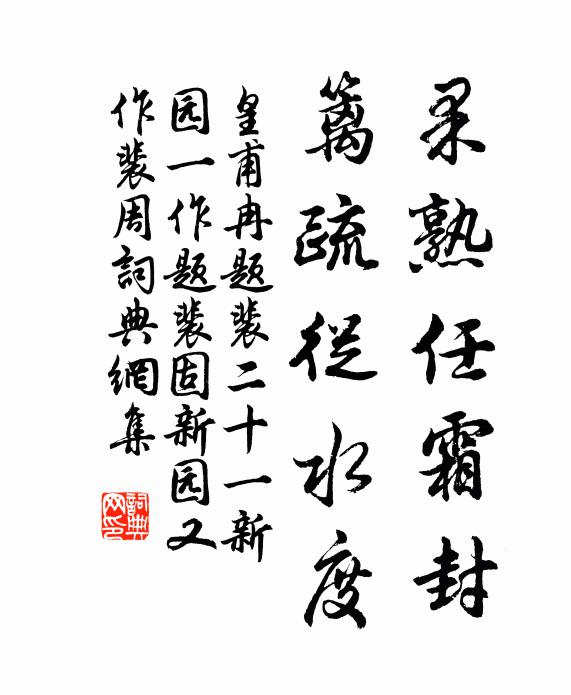 果熟任霜封
篱疏從水度
皇甫冉题裴二十一新
园一作题裴固新园又
作裴周詞典網集
詞典
网印